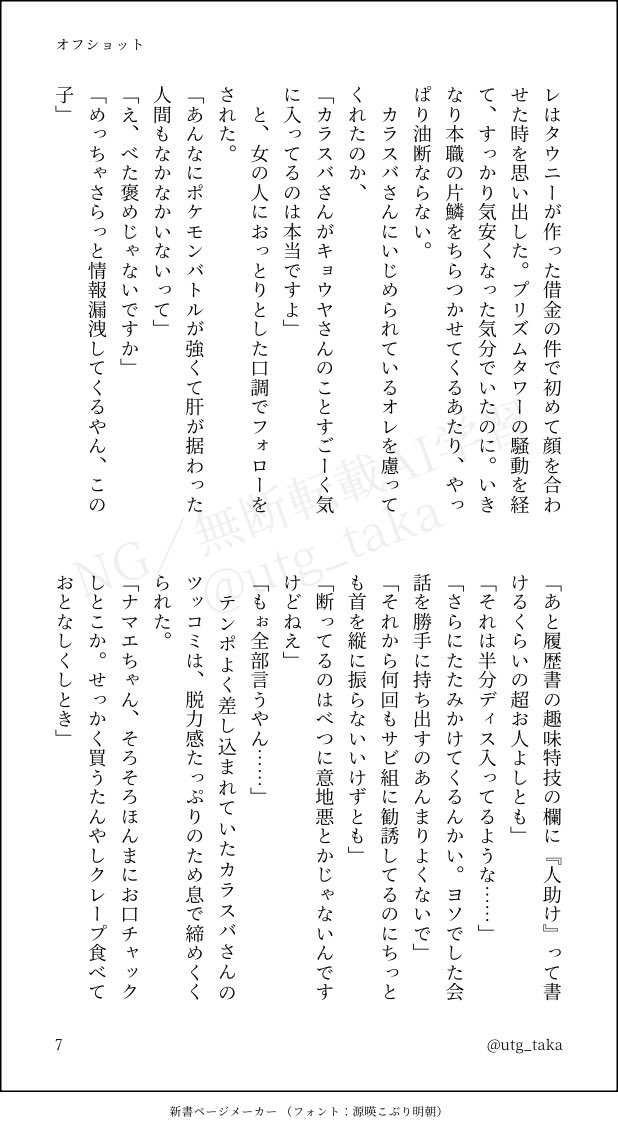 オフショット
レはタウニーが作った借金の件で初めて顔を合わ
せた時を思い出した。プリズムタワーの騒動を経
て、すっかり気安くなった気分でいたのに。いき
なり本職の片鱗をちらつかせてくるあたり、やっ
ぱり油断ならない。
　カラスバさんにいじめられているオレを慮って
くれたのか、
「カラスバさんがキョウヤさんのことすごーく気
に入ってるのは本当ですよ」
　と、女の人におっとりとした口調でフォローを
された。
「あんなにポケモンバトルが強くて肝が据わった
人間もなかなかいないって」
「え、べた褒めじゃないですか」
「めっちゃさらっと情報漏洩してくるやん、この
子」
「あと履歴書の趣味特技の欄に『人助け』って書
けるくらいの超お人よしとも」
「それは半分ディス入ってるような……」
「さらにたたみかけてくるんかい。ヨソでした会
話を勝手に持ち出すのあんまりよくないで」
「それから何回もサビ組に勧誘してるのにちっと
も首を縦に振らないいけずとも」
「断ってるのはべつに意地悪とかじゃないんです
けどねえ」
「もぉ全部言うやん……」
　テンポよく差し込まれていたカラスバさんの
ツッコミは、脱力感たっぷりのため息で締めくく
られた。
「ナマエちゃん、そろそろほんまにお口チャック
しとこか。せっかく買うたんやしクレープ食べて
おとなしくしとき」
NG／無断転載AI学習
@utg_taka
7
@utg_taka
新書ページメーカー（フォント：源暎こぶり明朝）